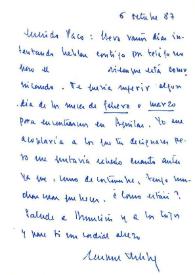 6 octubre 87
Querido Paco: Llevo varios días in-
tentando hablar contigo por teléfono
pero el siempre está comu-
nicando. Te quería sugerir algún
día de los meses de febrero o marzo
para encontrarnos en Aguilar. Yo me
acoplaría a los que tú designares pero
me gustaría saberlo cuanto antes
ya que, como de costumbre, tengo mu-
chas cosas que hacer. ¿Cómo estáis?
Saluda a Asunción y a los hijos
y para ti un cordial abrazo